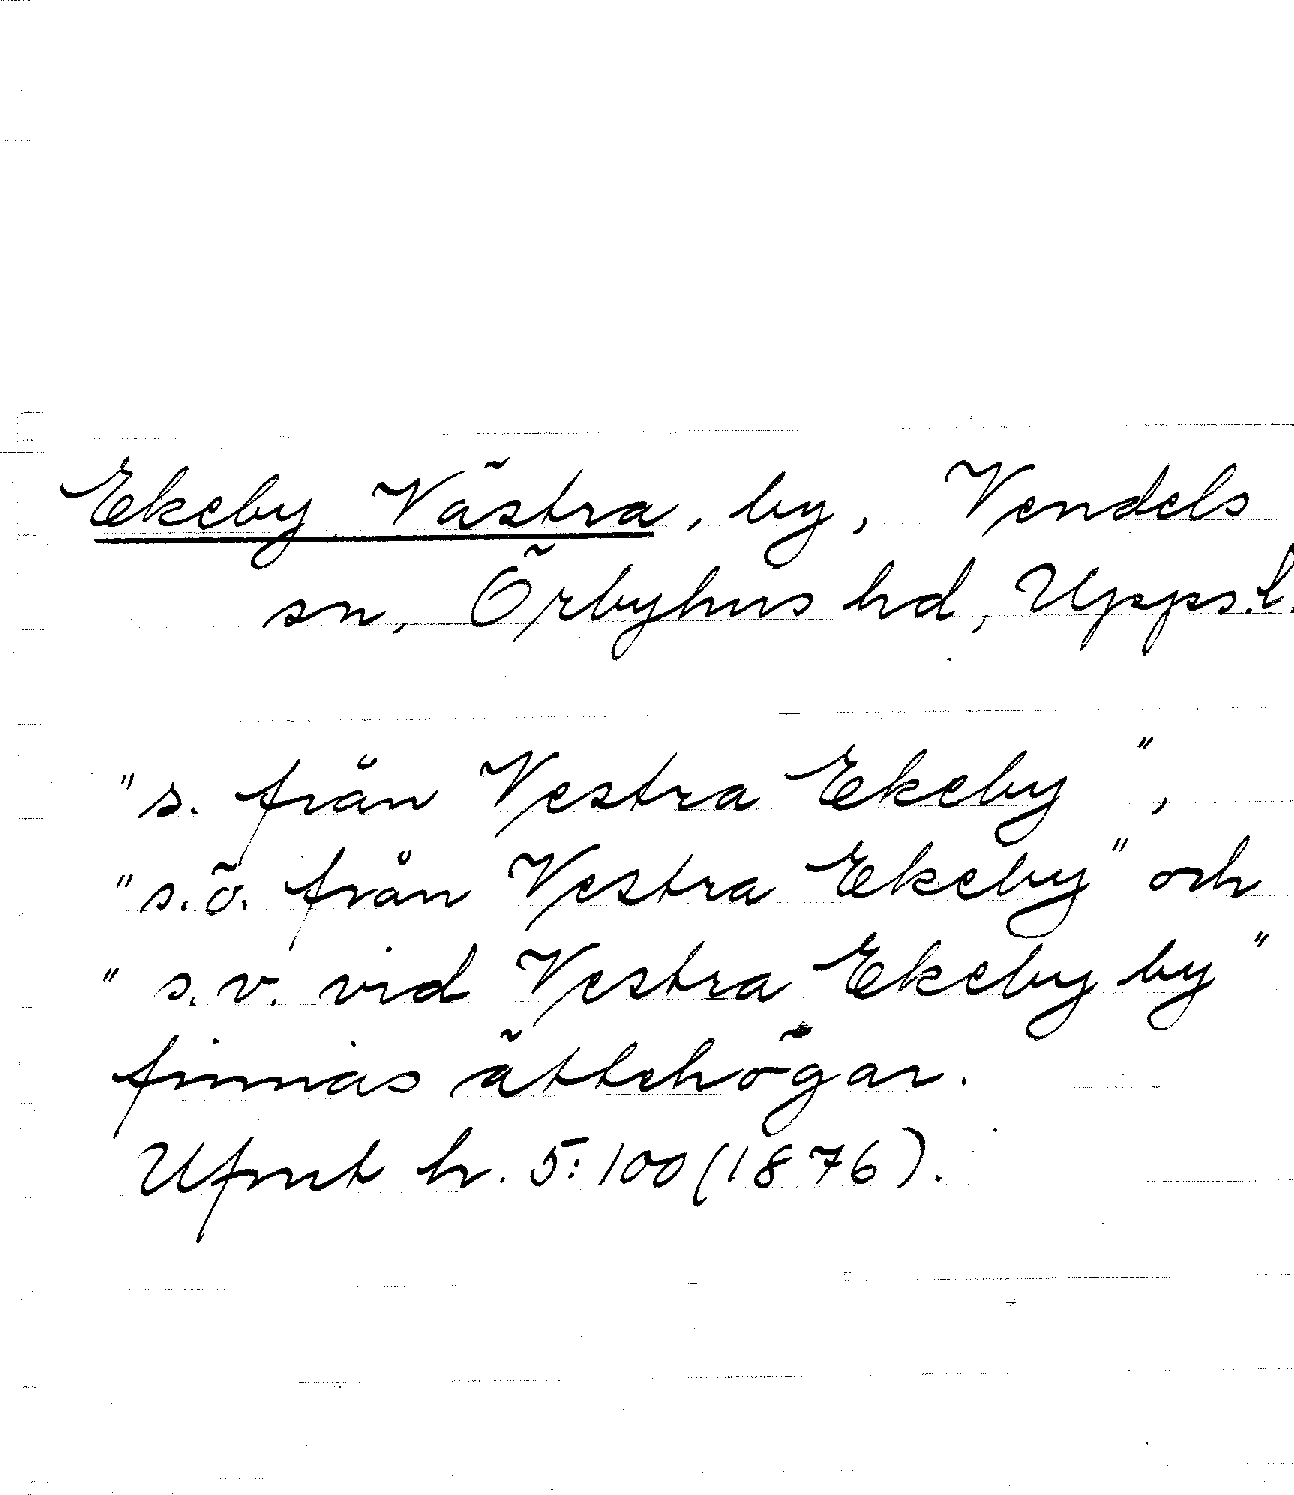 Ekeby Västra, by, Vendels
sn, Örbyhus hd, Upps.l.
"s. från Vestra Ekeby",
"s.ö. från Vestra Ekeby" och
"s.v. vid Vestra Ekeby by"
finnas ättehögar.
Ufmt h. 5:100 (1876).